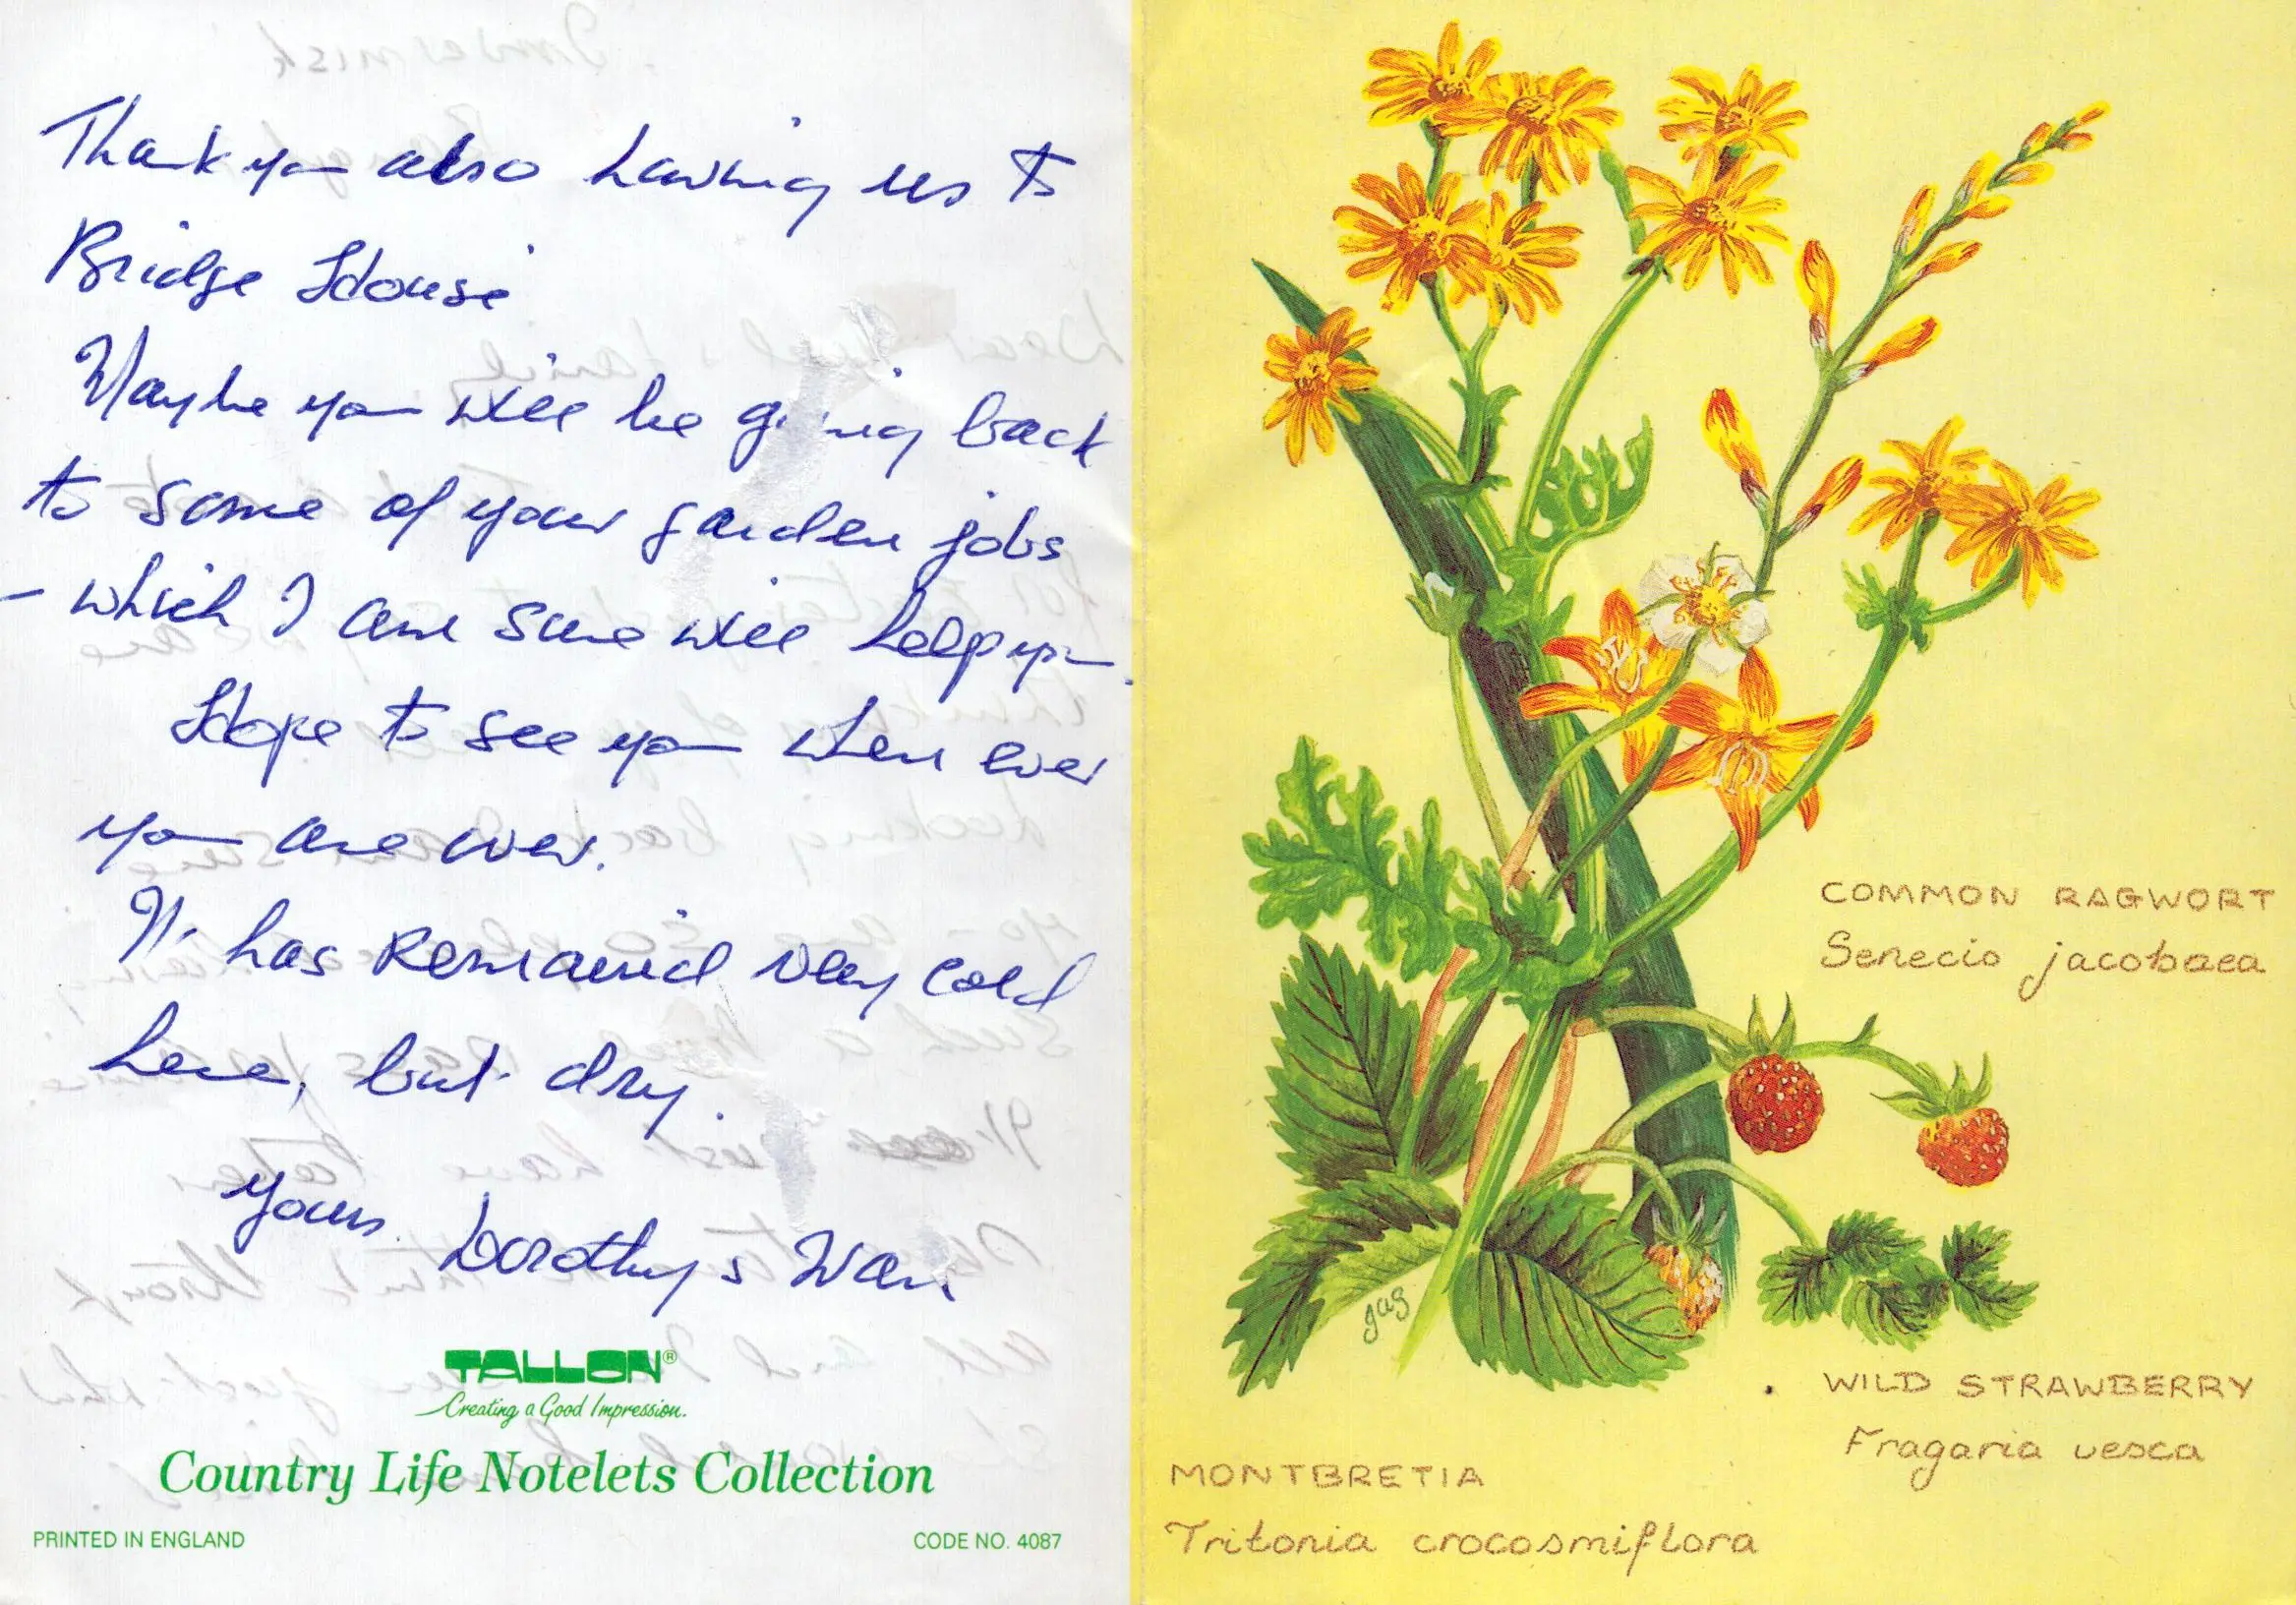 Thank you also having us to
Bridge House
Maybe you will be going back
to some of your garden jobs
- which I am sure will help you.
Hope to see you when ever
you are over.
It has remained very cold
here, but dry.
Yours Dorothy & 
TALLON®
Creating a Good Impression.
Country Life Notelets Collection
PRINTED IN ENGLAND
CODE NO. 4087
COMMON RAGWORT
Senecio jacobaea
jag
WILD STRAWBERRY
Fragaria vesca
MONTBRETIA
Tritonia crocosmiflora